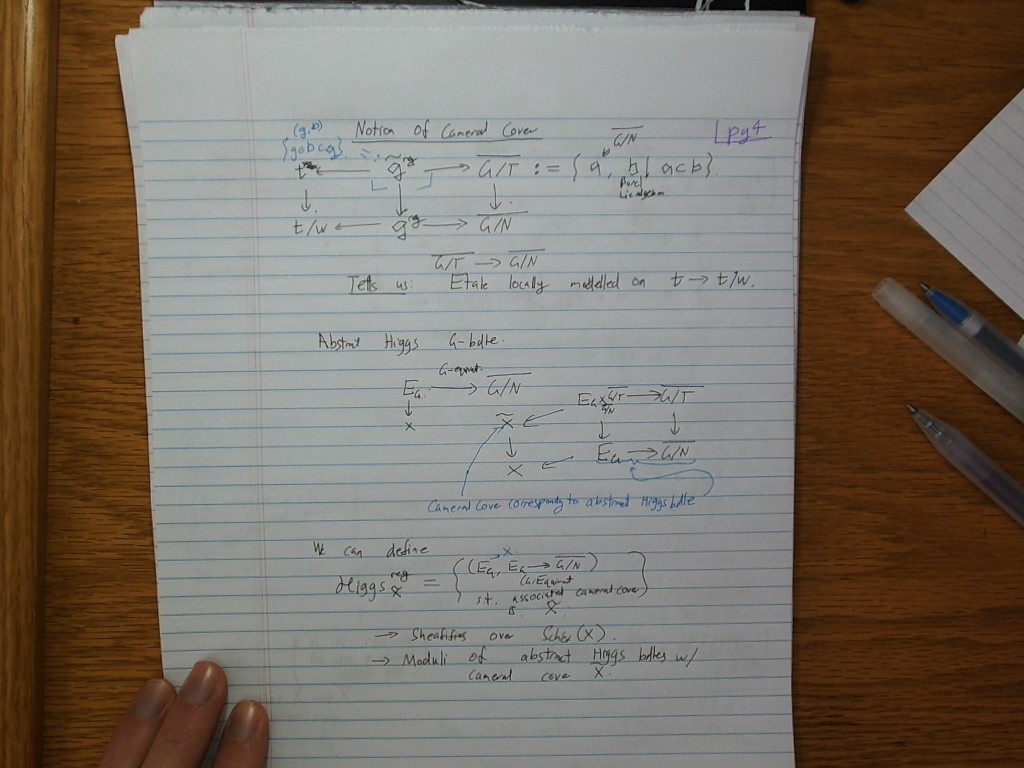 (g, b)
Notion of Cameral Cover
G/N
pg 4
{g ∈ b ⊂ g}
t ← g̃^reg → \overline{G/T} := { a, b | a ⊂ b }.
Borel
Lie algebra
↓ ↓ ↓
t/w ← g^reg → \overline{G/N}
\overline{G/T} → \overline{G/N}
Tells us: Etale locally modelled on t → t/w.
Abstract Higgs G-bdle.
G-equivat.
E_G → \overline{G/N}
↓
X
E_G × \overline{G/T} → \overline{G/T}
\overline{G/N}
X̃ ←
↓ ↓ ↓
E_G → \overline{G/N}
X ←
Cameral Cover corresponding to abstract Higgs bdle
We can define
Higgs^reg_X̃ = { (E_G, E_G → \overline{G/N})
→ X
G-Equivat
st. associated cameral cover
is X̃ }
→ Sheafifies over Schet(X).
→ Moduli of abstract Higgs bdles w/
cameral cove X̃.